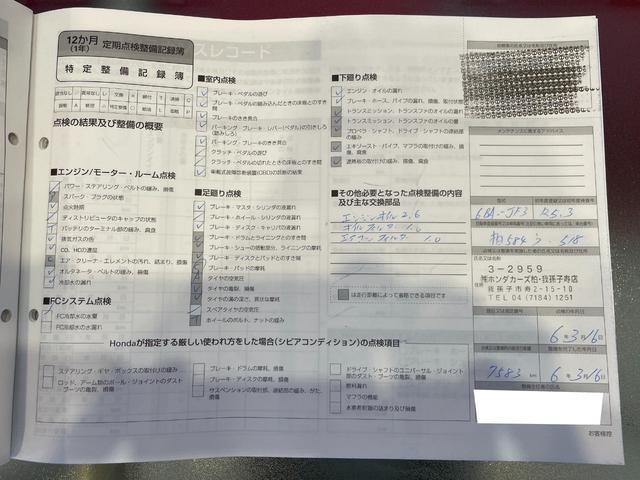 12か月
(1年)
定期点検整備記録簿
特定整備記録簿
スレコード
点検の結果及び整備の概要
■エンジン/モーター・ルーム点検
パワー・ステアリング・ベルトの緩み、損傷
スパーク・プラグの状態
点火時期
ディストリビュータのキャップの状態
バッテリのターミナル部の緩み、腐食
排気ガスの色
CO、HCの濃度
エア・クリーナ・エレメントの汚れ、詰まり、損傷
オルタネータ・ベルトの緩み、損傷
冷却水の漏れ
■FCシステム点検
FC冷却水の水量
FC冷却水の水漏れ
■室内点検
ブレーキ・ペダルの遊び
ブレーキ・ペダルの踏み込んだときの床板とのすき間
ブレーキのきき具合
パーキング・ブレーキ・レバー(ペダル)の引きしろ(踏みしろ)
パーキング・ブレーキのきき具合
クラッチ・ペダルの遊び
クラッチ・ペダルの切れたときの床板とのすき間
車載式故障診断装置(OBD)の診断の結果
■足廻り点検
ブレーキ・マスタ・シリンダの液漏れ
ブレーキ・ホイール・シリンダの液漏れ
ブレーキ・ディスク・キャリパの液漏れ
ブレーキ・ドラムとライニングとのすき間
ブレーキ・シューの摺動部分、ライニングの摩耗
ブレーキ・ディスクとパッドとのすき間
ブレーキ・パッドの摩耗
タイヤの空気圧
タイヤの亀裂、損傷
タイヤの溝の深さ、異状な摩耗
スペアタイヤの空気圧
ホイールのボルト、ナットの緩み
■下廻り点検
エンジン・オイルの漏れ
ブレーキ・ホース、パイプの漏れ、損傷、取付状態
トランスミッション、トランスファのオイルの漏れ
トランスミッション、トランスファのオイルの量
プロペラ・シャフト、ドライブ・シャフトの連結部の緩み
エキゾースト・パイプ、マフラの取付けの緩み、損傷、腐食
遮熱板の取付けの緩み、損傷、腐食
■その他必要となった点検整備の内容及び主な交換部品
エンジンオイル 2.6
オイルフィルタ
1.0
は走行距離によって省略できる項目です
Hondaが指定する厳しい使われ方をした場合(シビアコンディション)の点検項目
ステアリング・ギヤ・ボックスの取付けの緩み
ロッド、アーム類のボール・ジョイントのダスト・ブーツの亀裂、損傷
ブレーキ・ドラムの摩耗、損傷
ブレーキ・ディスクの摩耗、損傷
サスペンションの取付部、連結部の緩み、がた、損傷
ドライブ・シャフトのユニバーサル・ジョイント部のダスト・ブーツの亀裂、損傷
燃料漏れ
マフラの機能
水素希釈器の詰まり及び損傷
メンテナンスに関するアドバイス
型式
6BA-JF3
R5.3
柏 584 う 518
3-2959
㈱ホンダカーズ柏・我孫子寿店
我孫子市寿2-15-10
TEL 04(7184)1251
点検の年月日
6年3月16日
整備を完了した年月日
7583 km
6年3月16日
お客様控